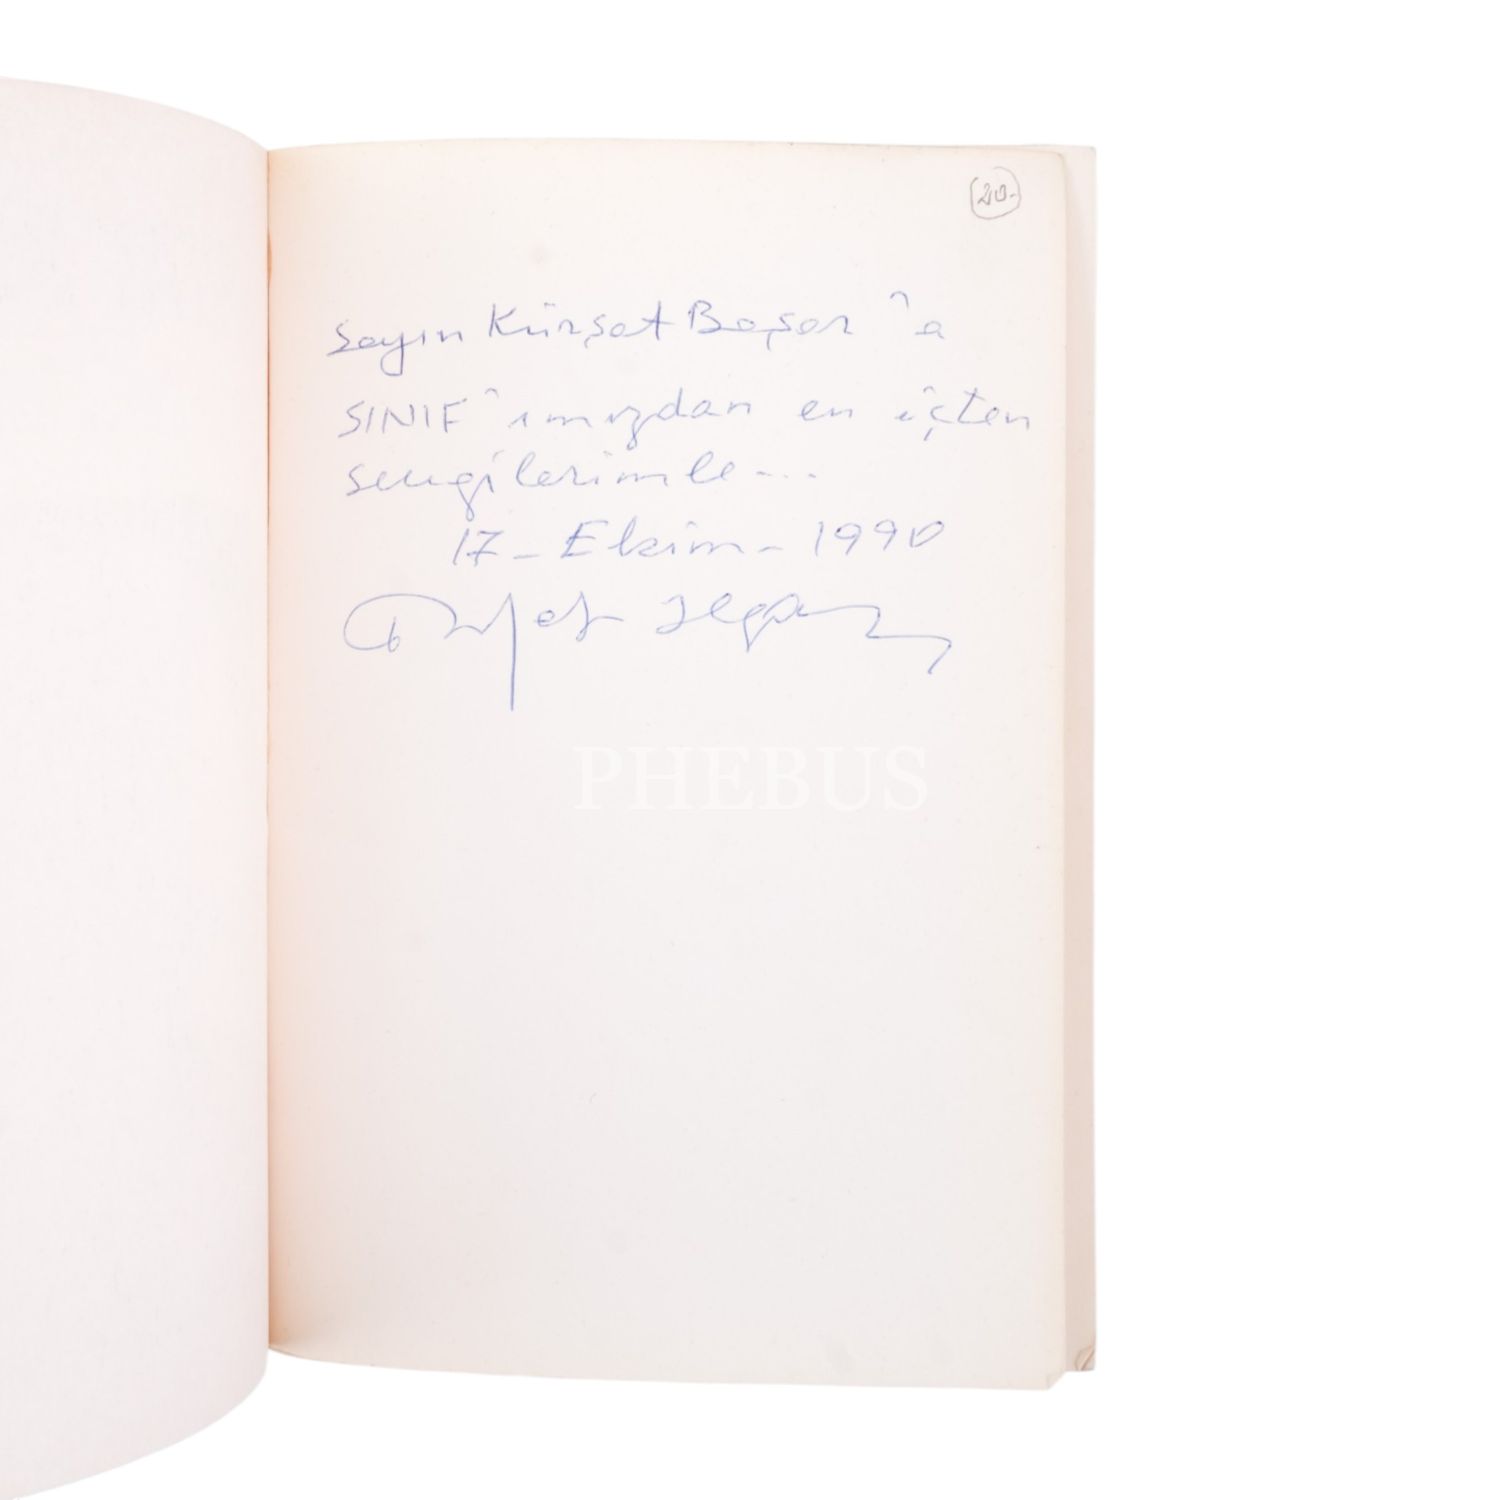 20.-
Sayın Kürşat Başar'a
SINIF'ımızdan en içten
sevgilerimle...
17 - Ekim - 1990
Rıfat Ilgaz
PHEBUS